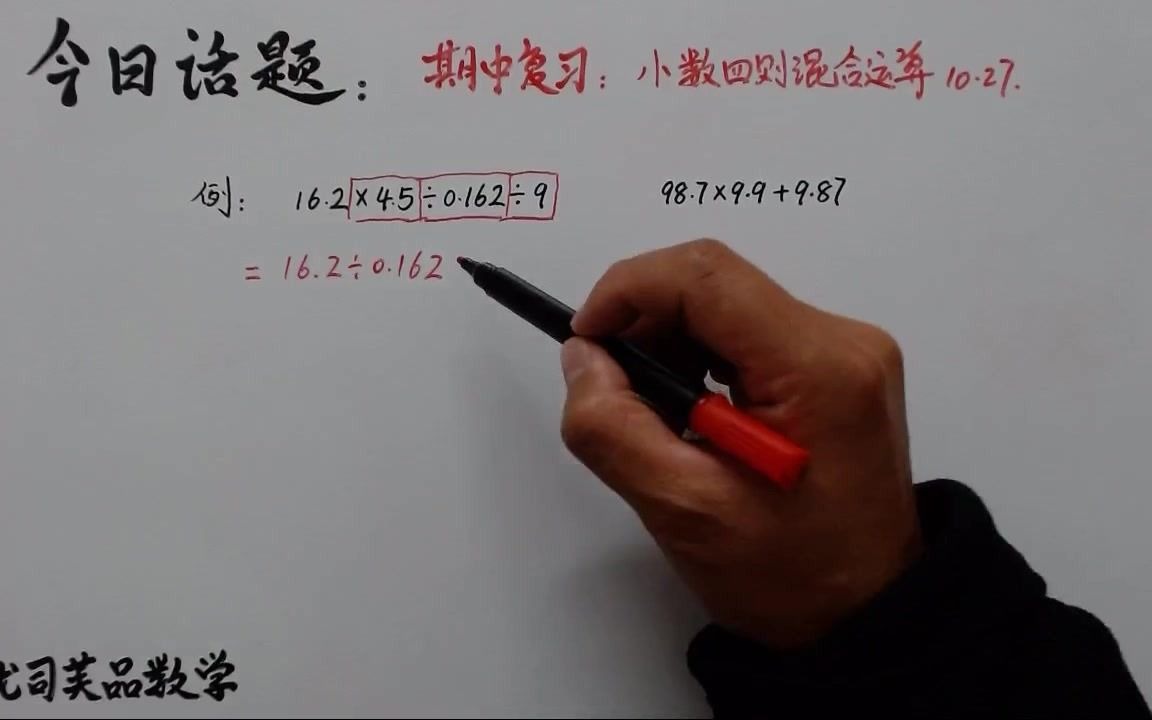 今日话题：期中复习：小数四则混合运算 10.27.
例： 16.2×4.5÷0.162÷9 98.7×9.9+9.87
= 16.2÷0.162
司芙品数学